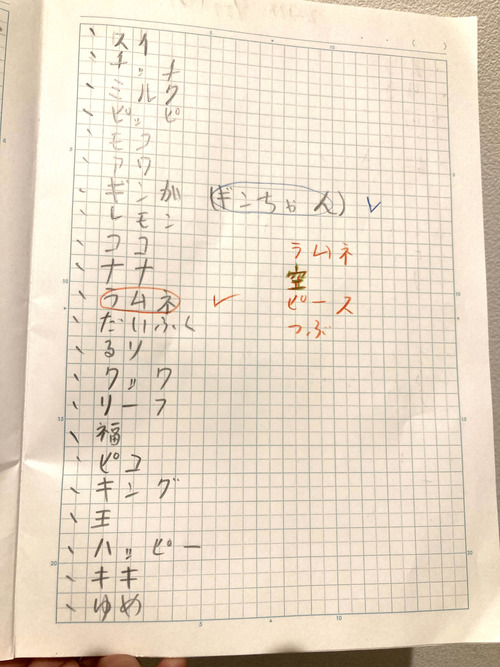 、スイ
、ナッナ
、ミルク
、ピッピ
、モコ
、アワ
、ギンガ (ギンちゃん) ✓
、レモン
、ココ
、ナナ
、ラムネ ✓
、だいふく
、るり
、クック
、リーフ
、福
、ピコ
、キング
、王
、ハッピー
、キキ
、ゆめ
ラムネ
空
ピース
つぶ